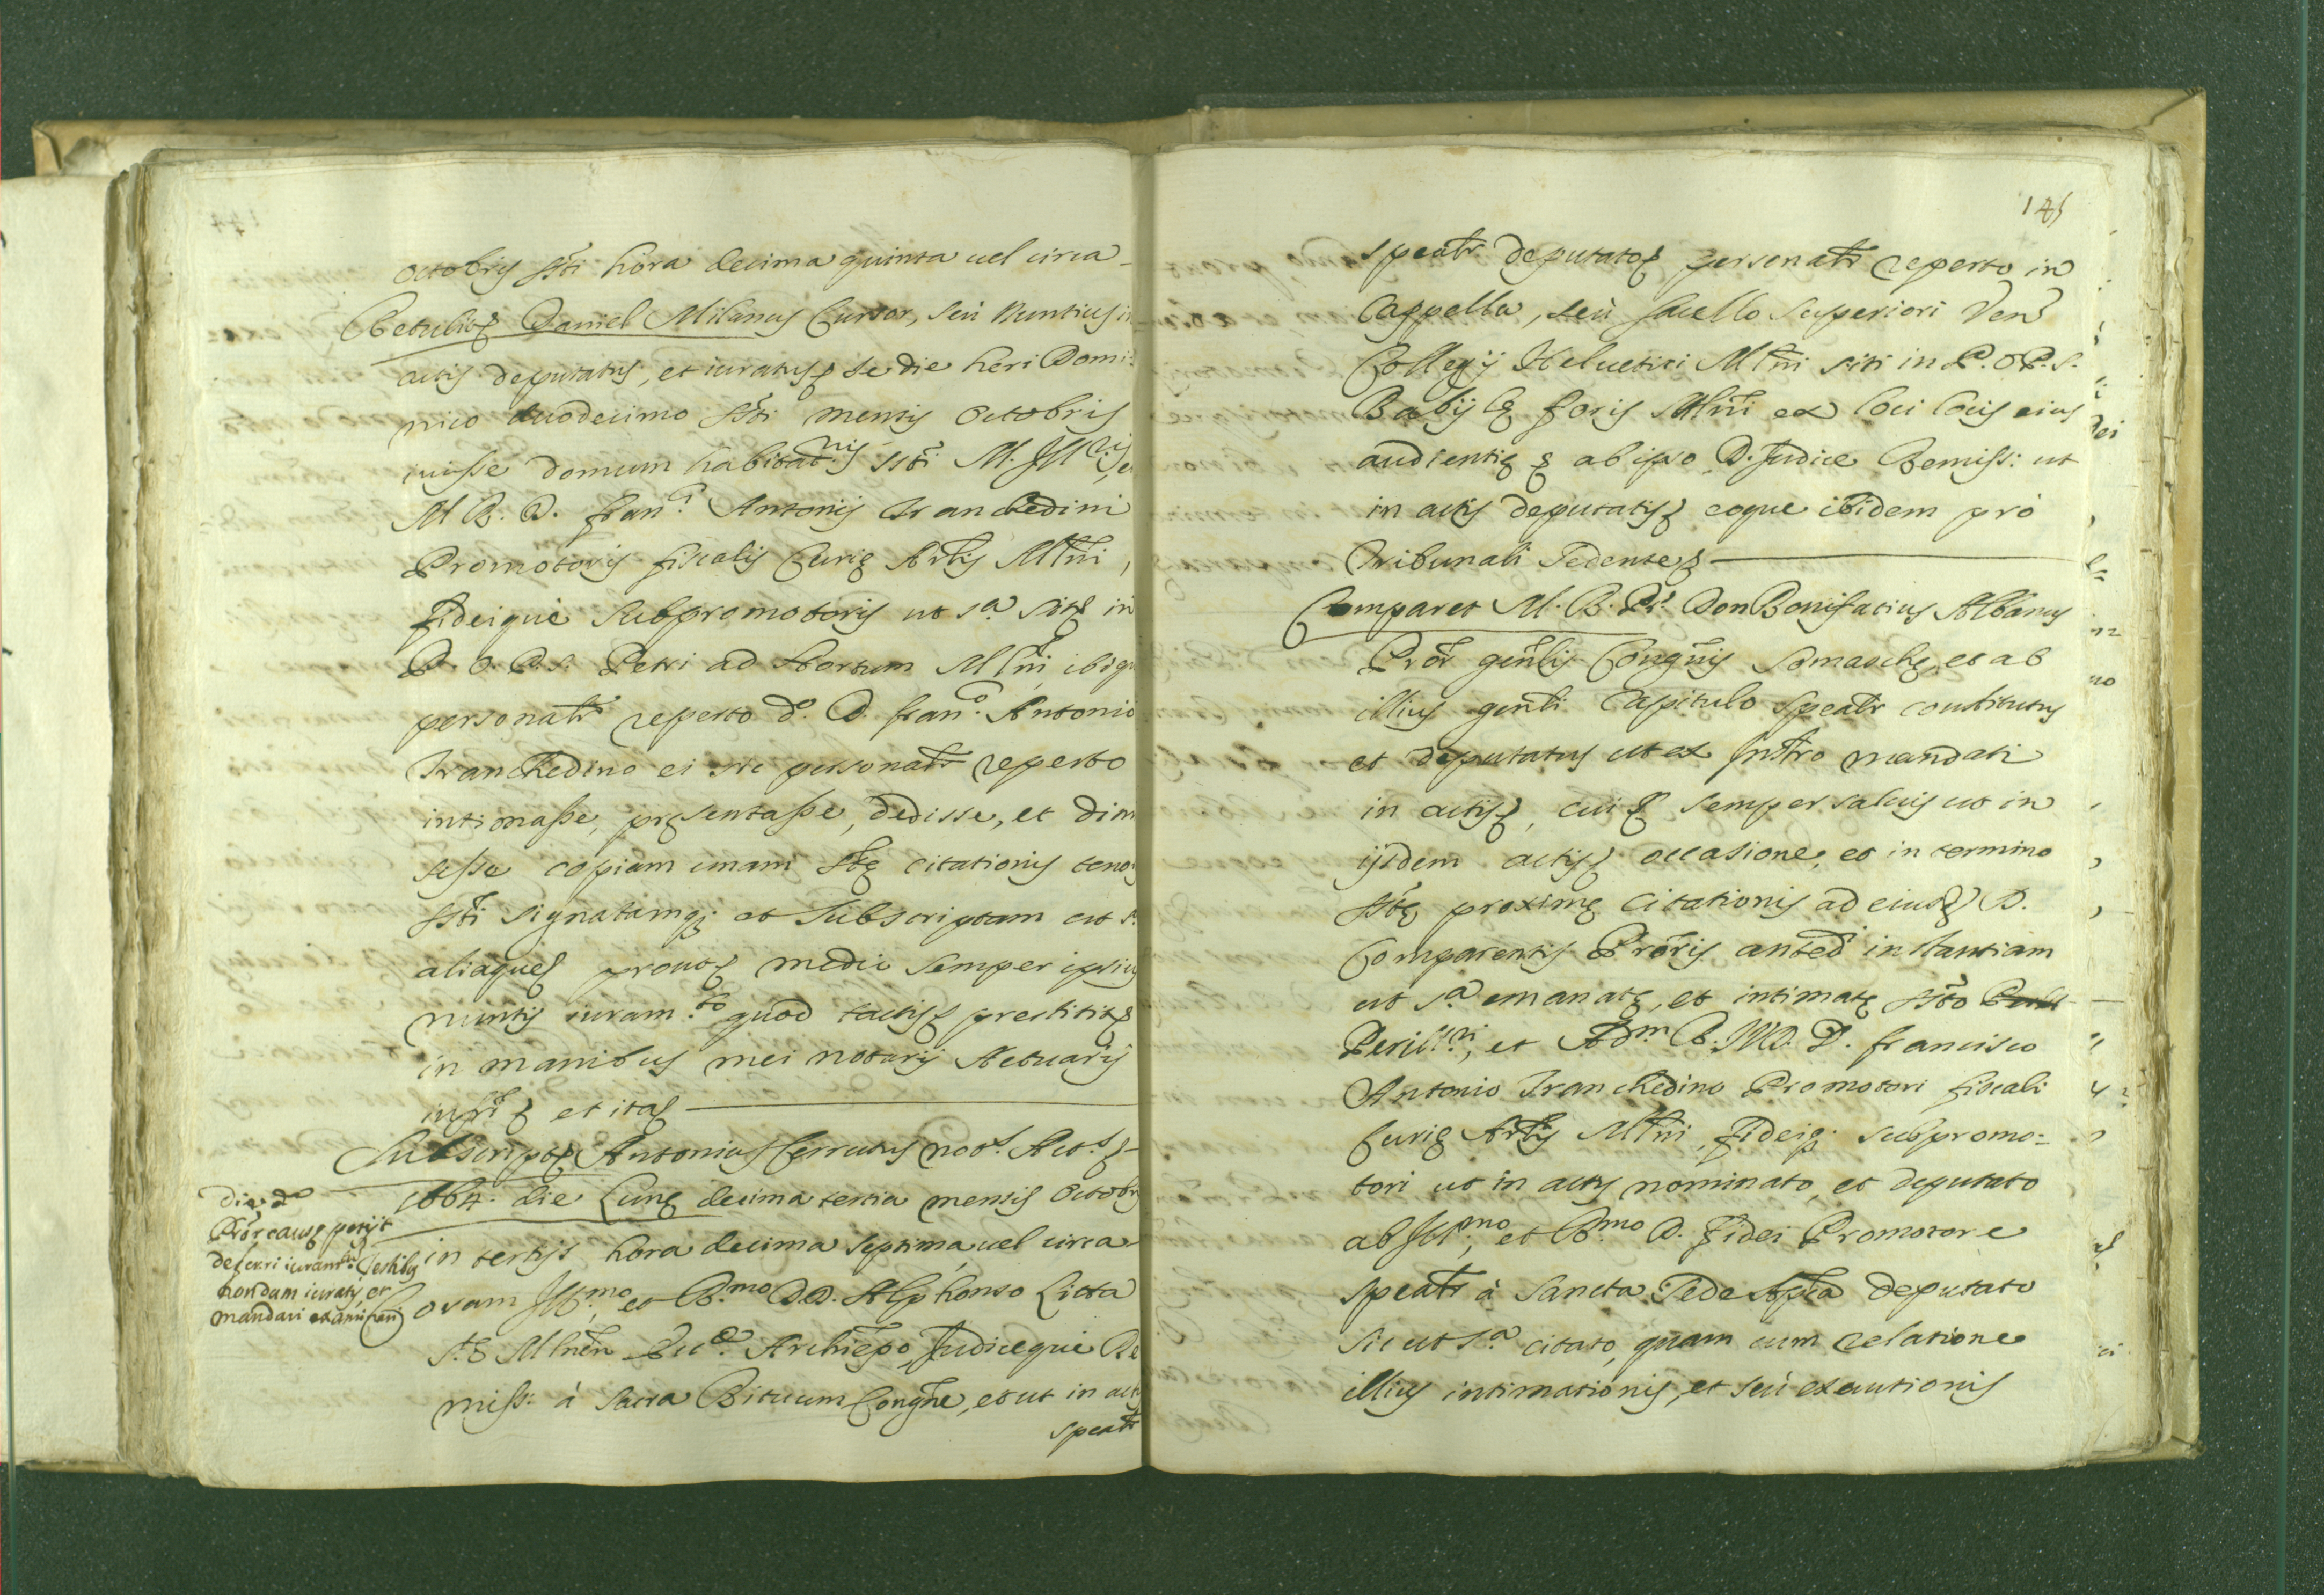 octobris ssti hora decima quinta uel circa
Retulit Daniel Milanus Cursor, seù Nuntius in
actis deputatus, et iuratus se die heri Domi:
nico duodecimo ssti mensis Octobris
iuisse domum habitat.nis ssti M. Ill.ris, et
M. R. D. Fran.ci Antonij Tranchedini
Promotoris fiscalis Curię Arlis Mlni,
fideique Subpromotoris ut s.a sitę in
P. O. D. S. Petri ad Hortum Mlni, ibiq
personalr reperto d.o D. Fran.co Antonio
Tranchedino ei sic personalr reperto
intimasse, pręsentasse, dedisse, et dim
sisse copiam unam sstę citationis teno
ssti signatamq; et Subscriptam ut s.a
aliaque prout medio semper ipsius
nuntij iuram.to quod tactis prestitit
in manibus mei notarij Actuarij
infrti et ita
Subscript Antonius Cerrutus not.s Act.s
1664. die Lunę decima tertia mensis Octobris
in tertijs hora decima septima, uel circa
Coram Ill.mo, et R.mo D.D. Alphonso Litta
S. S. Mlnen Ecc.ę Archiepo, Judiceque Re
miss: à Sacra Rituum Congne, et ut in act
spealr
die d.a
Pror causę petijt
deferri iuram.tum testibus
nondum iuratis, et
mandari examinari
145
spealr deputato personalr reperto in
Cappella, seù sacello superiori Ven
Collegij Heluetici Mlni siti in P. O. P. S.
Babilę foris Mlni ex loci locis eius
audientię ab ipso D. Judice Remiss: ut
in actis deputatis eoque ibidem prò
Tribunali Sedente
Comparet M. R. Pr. Don Bonifatius Albanus
Pror gnlis Congnis Somaschę, et ab
illius gnli Capitulo spealr constitutus
et deputatus ut ex Instro mandati
in actis, cui semper saluis ut in
ijsdem actis occasione, et in termino
sstę proximę citationis ad eiusd D.
Comparentis Proris anted instantiam
ut s.a emanatę, et intimatę ssto
Perill.ri, et Adm. R. J.V.D. D. Francisco
Antonio Tranchedino Promotori fiscali
Curię Arlis Mlni, fideiq; subpromo:
tori ut in actis nominato, et deputato
ab Ill.mo, et R.mo D. Fidei Promotore
spealr à Sancta Sede Aplica deputato
sic ut s.a citato, quam cum relatione
illius intimationis, et seù executionis